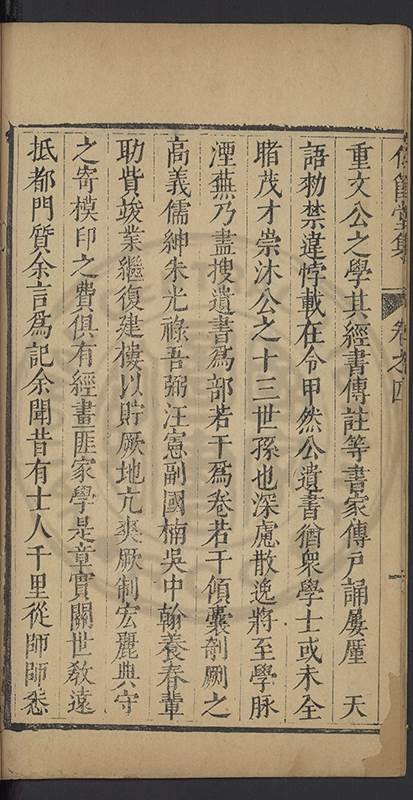 重文公之學其經書傳註等書家傳戶誦屢厪 天
語勑禁違悖載在令甲然公遺書猶衆學士或未全
睹茂才崇沐公之十三世孫也深慮散逸將至學脉
湮蕪乃盡搜遺書為部若干為卷若干傾囊剞劂之
高義儒紳朱光祿吾弼汪憲副國楠吳中翰養春輩
助貲竣業繼復建樓以貯厥地亢爽厥制宏麗典守
之寄模印之費俱有經畫匪家學是章實關世敎遠
抵都門質余言為記余聞昔有士人千里從師師悉
堂集
卷之四